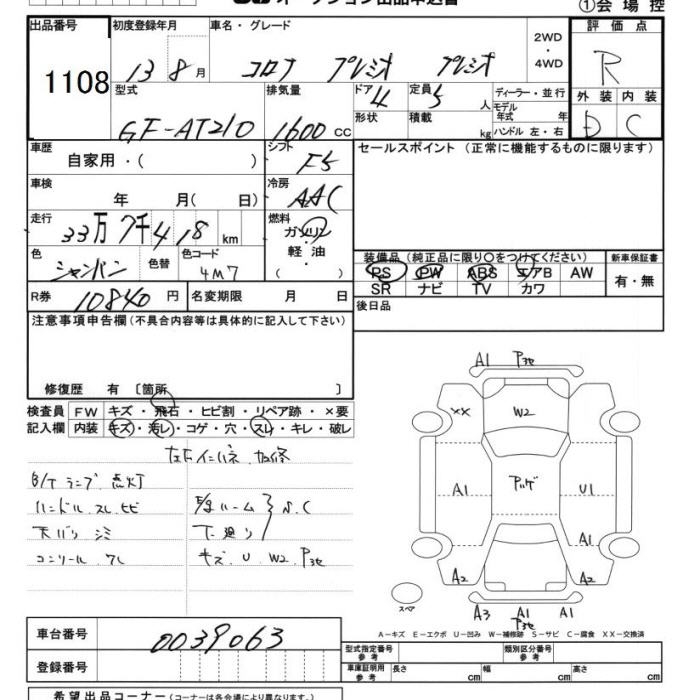 ①会場控
出品番号
1108
初度登録年月
13 8月
車名・グレード
コロナ プレミオ プレミオ
2WD
・
4WD
評価点
R
外装 内装
D C
型式
GF-AT210
排気量
1600 CC
ドア
4
形状
定員
5 人
積載
kg
ディーラー・並行
モデル
年式 年
ハンドル 左・右
車歴
自家用・( )
シフト
F5
セールスポイント (正常に機能するものに限ります)
車検
年 月( 日)
冷房
AAC
走行
33万7千418 km
燃料
ガソリン
・
軽油
( )
色
シャンパン
色替
色コード
4M7
装備品 (純正品に限り○をつけてください)
PS PW ABS エアB AW
SR ナビ TV カワ
新車保証書
有・無
R券
10840 円
名変期限 月 日
後日品
注意事項申告欄(不具合内容等は具体的に記入して下さい)
修復歴 有〔箇所 〕
検査員
記入欄
FW キズ・飛石・ヒビ割・リペア跡・×要
内装 キズ・汚レ・コゲ・穴・スレ・キレ・破レ
左右インパネ 加修
B/T ランプ 点灯
ハンドル スレ ヒビ
天バリ シミ
コンソール ワレ
E/gルーム S.C
下廻り
キズ U W2 P3セ
A1 P3セ
XX
W2
A1
U1
A1
A2
A2
スペア
A3 A1 A1
P3セ
A-キズ E-エクボ U-凹み W-補修跡 S-サビ C-腐食 XX-交換済
車台番号
0039063
登録番号
型式指定番号
参考
類別区分番号
参考
車庫証明用
参考
長さ cm
幅 cm
高さ cm
希望出品コーナー(コーナーは各会場により異なります。)